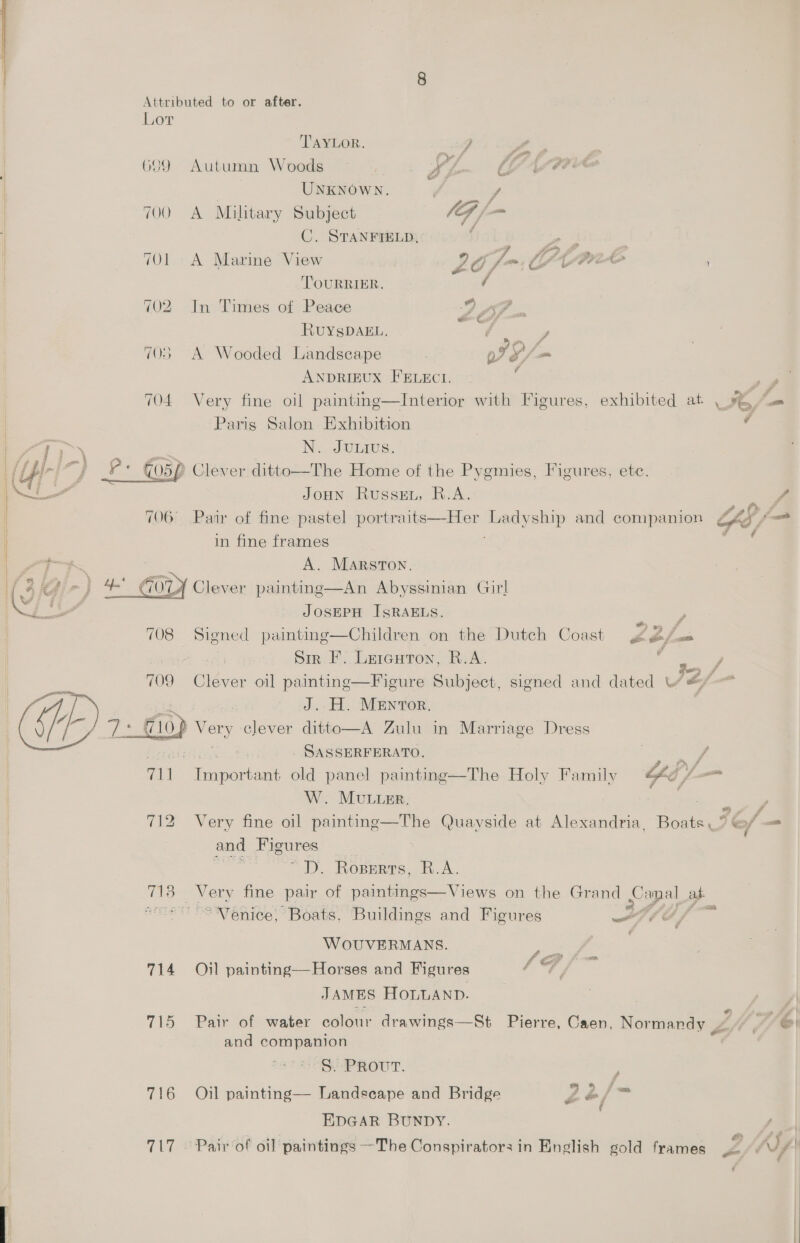 8
Attributed to or after.
Lot
TAYLOR.
699 Autumn Woods
UNKNOWN.
700 A Military Subject
C. STANFIELD.
701 A Marine View
TOURRIER.
702 In Times of Peace
RUYSDAEL.
703 A Wooded Landscape
ANDRIEUX FELECI.
704 Very fine oil painting—Interior with Figures, exhibited at
Paris Salon Exhibition
N. JULIUS.
705 Clever ditto—The Home of the Pygmies, Figures, etc.
JOHN RUSSEL, R.A.
706 Pair of fine pastel portraits—Her Ladyship and companion
in fine frames
A. MARSTON.
707 Clever painting—An Abyssinian Girl
JOSEPH ISRAELS.
708 Signed painting—Children on the Dutch Coast 22/-
SIR F. LEIGHTON, R.A.
709 Clever oil painting—Figure Subject, signed and dated
J. H. MENTOR.
710 Very clever ditto—A Zulu in Marriage Dress
SASSERFERATO.
711 Important old panel painting—The Holy Family
W. MULLER.
712 Very fine oil painting—The Quayside at Alexandria, Boats,
and Figures
D. ROBERTS, R.A.
713 Very fine pair of paintings—Views on the Grand Canal at
Venice, Boats, Buildings and Figures
WOUVERMANS.
714 Oil painting—Horses and Figures
JAMES HOLLAND.
715 Pair of water colour drawings—St Pierre, Caen, Normandy
and companion
S. PROUT.
716 Oil painting—Landscape and Bridge 22/-
EDGAR BUNDY.
717 Pair of oil paintings—The Conspirators in English gold frames